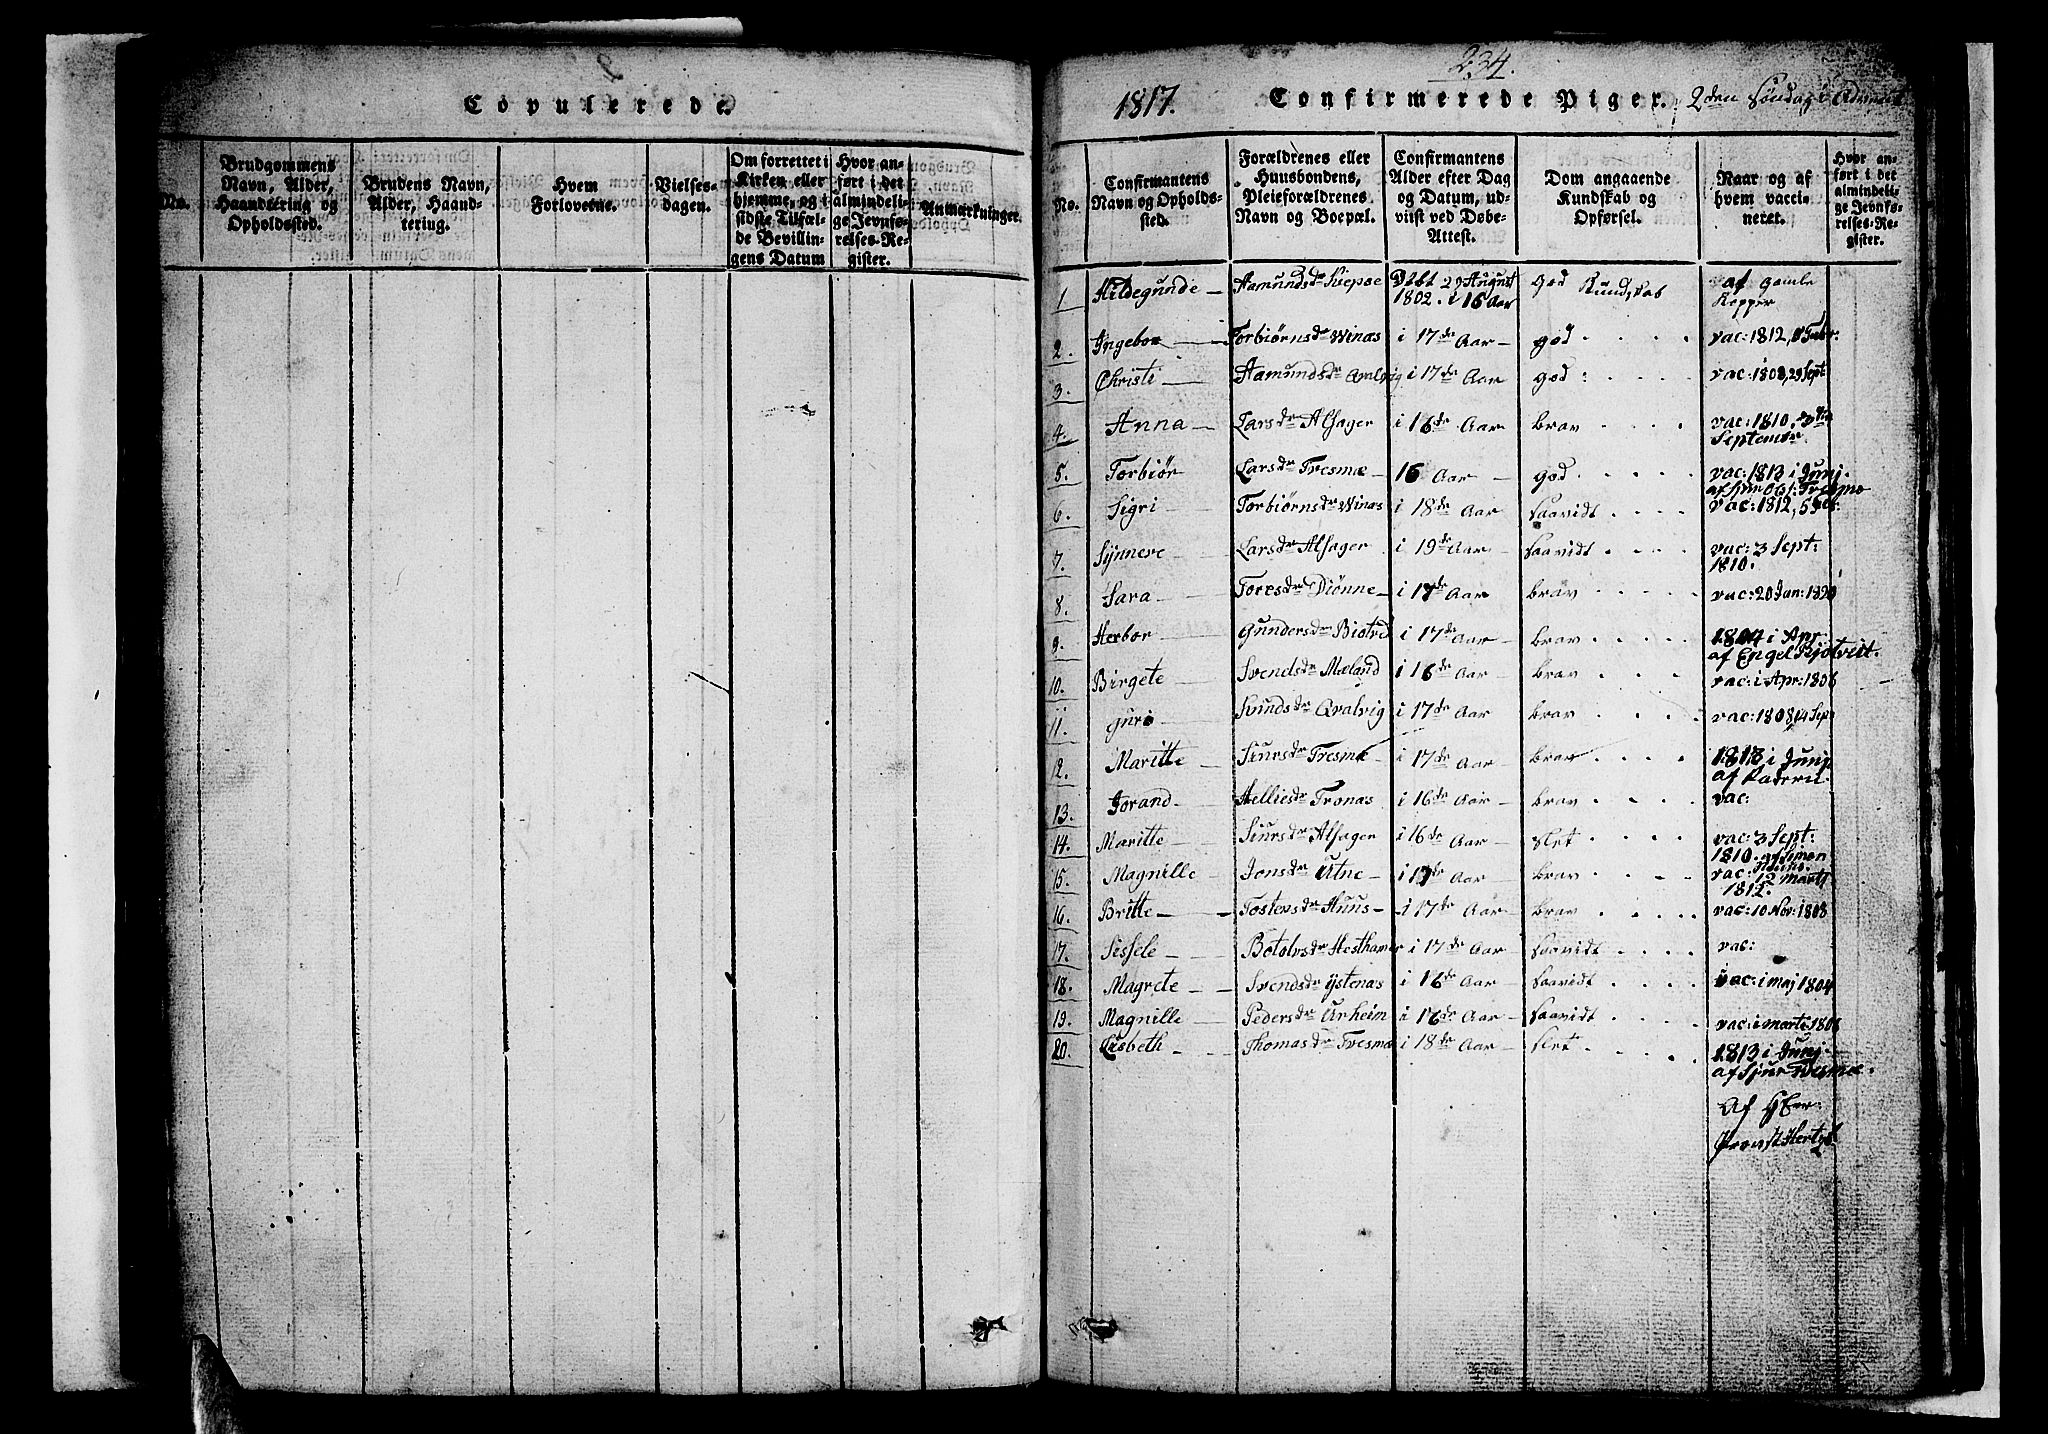 Copulerede.
No.
Brudgommens
Navn, Alder,
Haandtering og
Opholdssted.
Brudens Navn,
Alder, Haand-
tering.
Hvem
Forloverne.
Vielses-
dagen.
Om forrettet i
Kirken eller
hjemme, og i
sidste Tilfæl-
de Bevillin-
gens Datum
Hvor an-
ført i det
almindeli-
ge Jevnfø-
relses-Re-
gister.
Anmærkninger.
234.
1817. Confirmerede Piger. 2den Søndag i Advent
No.
Confirmantens
Navn og Opholds-
sted.
Forældrenes eller
Huusbondens,
Pleieforældrenes
Navn og Boepæl.
Confirmantens
Alder efter Dag
og Datum, ud-
viist ved Døbe-
Attest.
Dom angaaende
Kundskab og
Opførsel.
Naar og af
hvem vacci-
neret.
Hvor an-
ført i det
almindeli-
ge Jevnfø-
relses-Re-
gister.
1 Hildegunde Aamundsdr Kiepsoe Døbt 29 August 1802. i 16 Aar god Kundskab af gamle Kopper
2. Ingebor Torbiørnsdr Winæs i 17de Aar god vac: 1812, Febr:
3. Christi Aamundsdr Qvalvig i 17de Aar god vac: 1808, 29 Sept
4. Anna Larsdr Alsager i 16de Aar brav vac: 1810. Septemer
5. Torbiør Larsdr Tresmæ 16 Aar god vac: 1813 i Junj.
6. Sigri Torbiørnsdr Winæs i 18de Aar saavidt vac: 1812, 5
7. Synneve Larsdr Alsager i 19de Aar saavidt vac: 3 Sept: 1810.
8. Sara Toresdr Diønne i 17de Aar brav vac: 20 Jan:
9. Herbor Gundersdr Biotved i 17de Aar brav i Apr af Engel
10. Birgete Svendsdr Mæland i 16de Aar brav vac: i Apr: 1806
11. Guri Svindsdr Qvalvig i 17de Aar brav vac: 1808 14 Sept
12. Maritte Siursdr Tresmæ i 17de Aar brav 1813 i Junj af
13. Jorand Helliesdr Tronæs i 16de Aar brav vac:
14. Maritte Siursdr Alsager i 16de Aar slet vac: 3 Sept: 1810. af Simon
15. Magnille Jonsdr Utne i de Aar brav vac: 12 Marts 1812.
16. Britte Tostensdr Huus i 17de Aar brav vac: 10 Nov: 1808
17. Sissele Botolvsdr Hesthamer i 17de Aar saavidt vac:
18. Magrete Svendsdr Ystenæs i 16de Aar saavidt vac: i maj 1804
19. Magnille Pedersdr Urheim i 16de Aar saavidt vac: i marts
20. Lisbeth Thomasdr Tresmæ i 18de Aar slet 1813 i Junj. af Sjur
Af Hr
Provst Hertzb